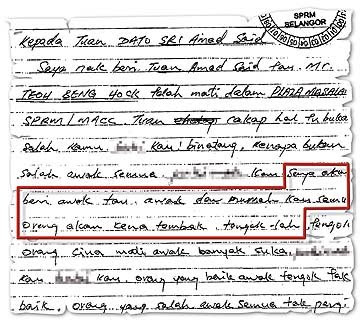 SPRM
SELANGOR
Kepada Tuan DATO SRI Amad Said
Saya nak beri Tuan Amad Said tau. Mr.
TEOH BENG HOCK telah mati dalam PLAZA MASALAM
SPRM/MACC. Tuan cakap hal tu bukan
salah kamu kau! binatang, kenapa bukan
salah awak semua kau Saya akan
beri awak tau. awak dan rumah kau semua
Orang akan kena tembak. tengok-lah tengok
orang Cina mati awak banyak suka,
kau kau. orang yang baik awak tengok tak
baik, Orang yang salah awak semua tak pergi